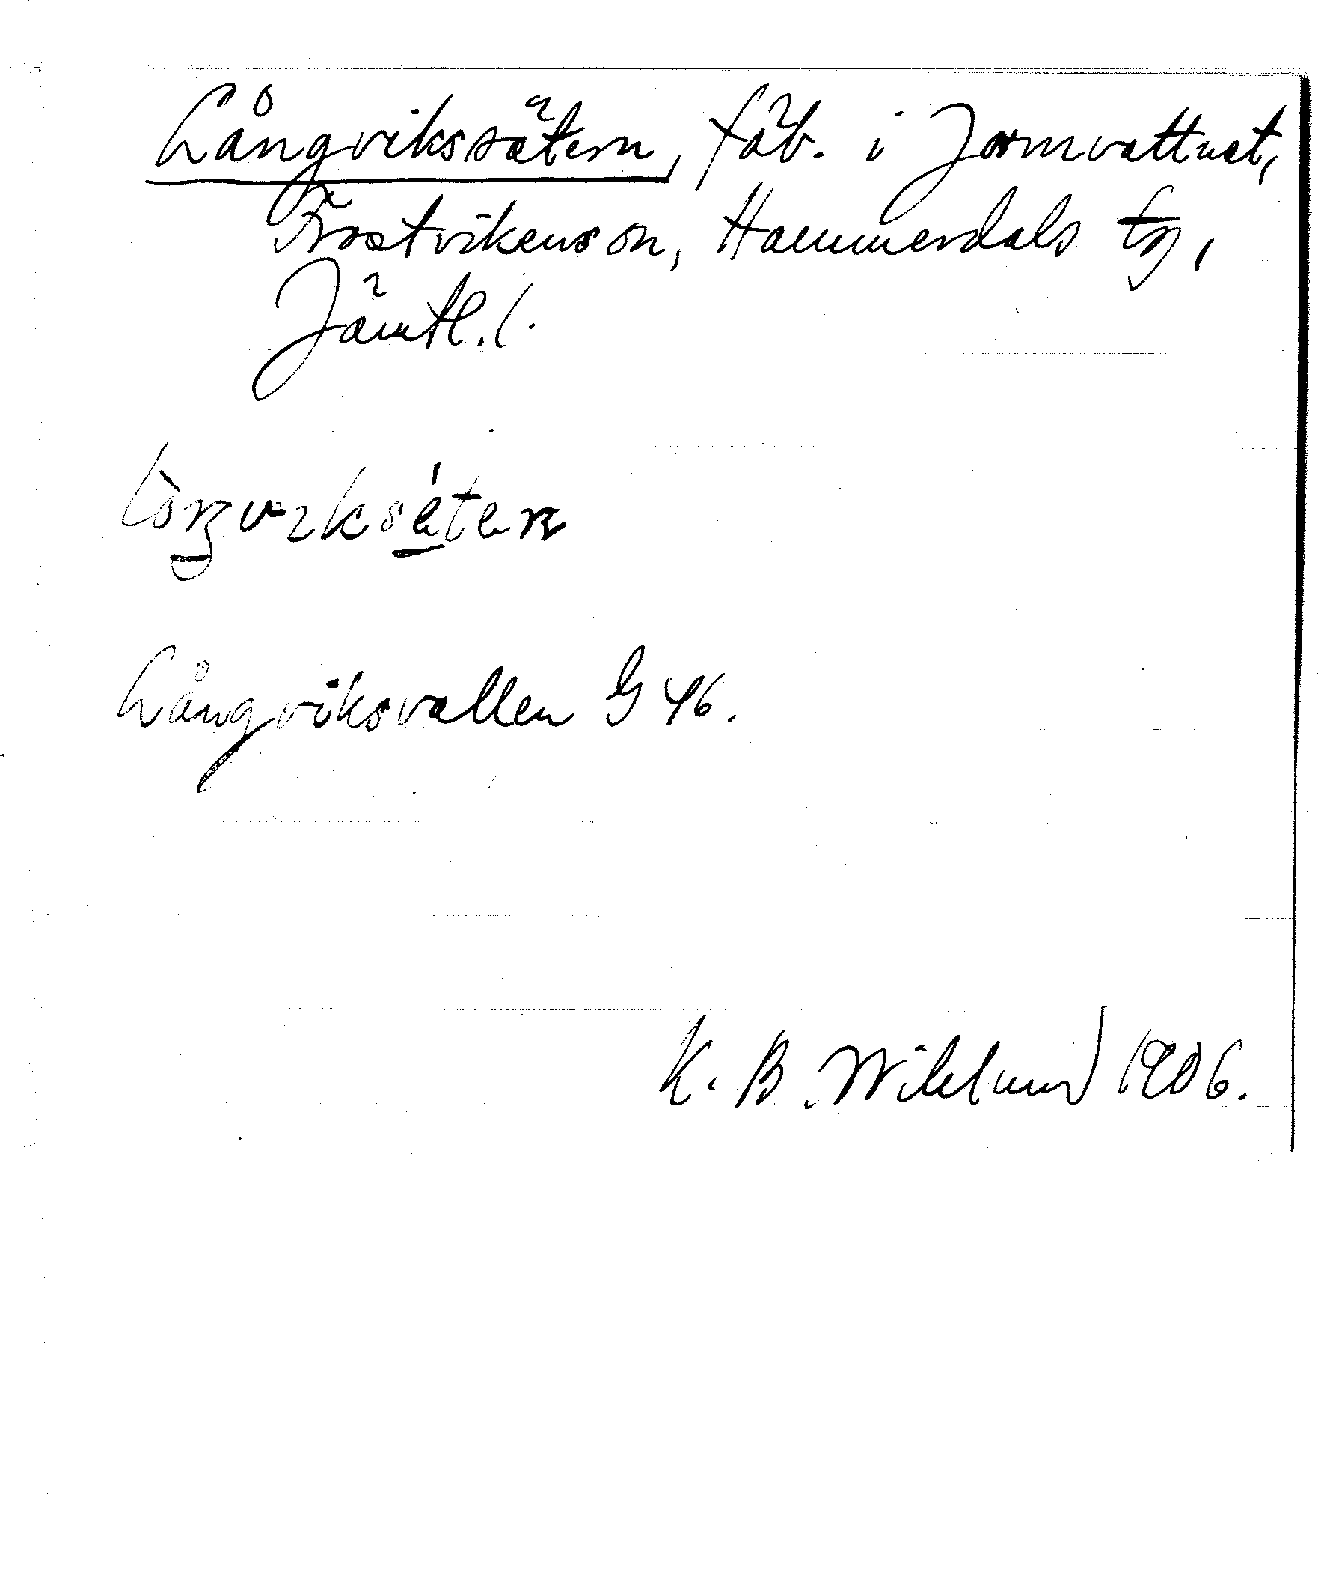 Långvikssätern, fäb. i Jormvattnet,
Frostvikens sn, Hammerdals tg,
Jämtl. l.
Långviksvallen G 46.
K. B. Wiklund 1906.